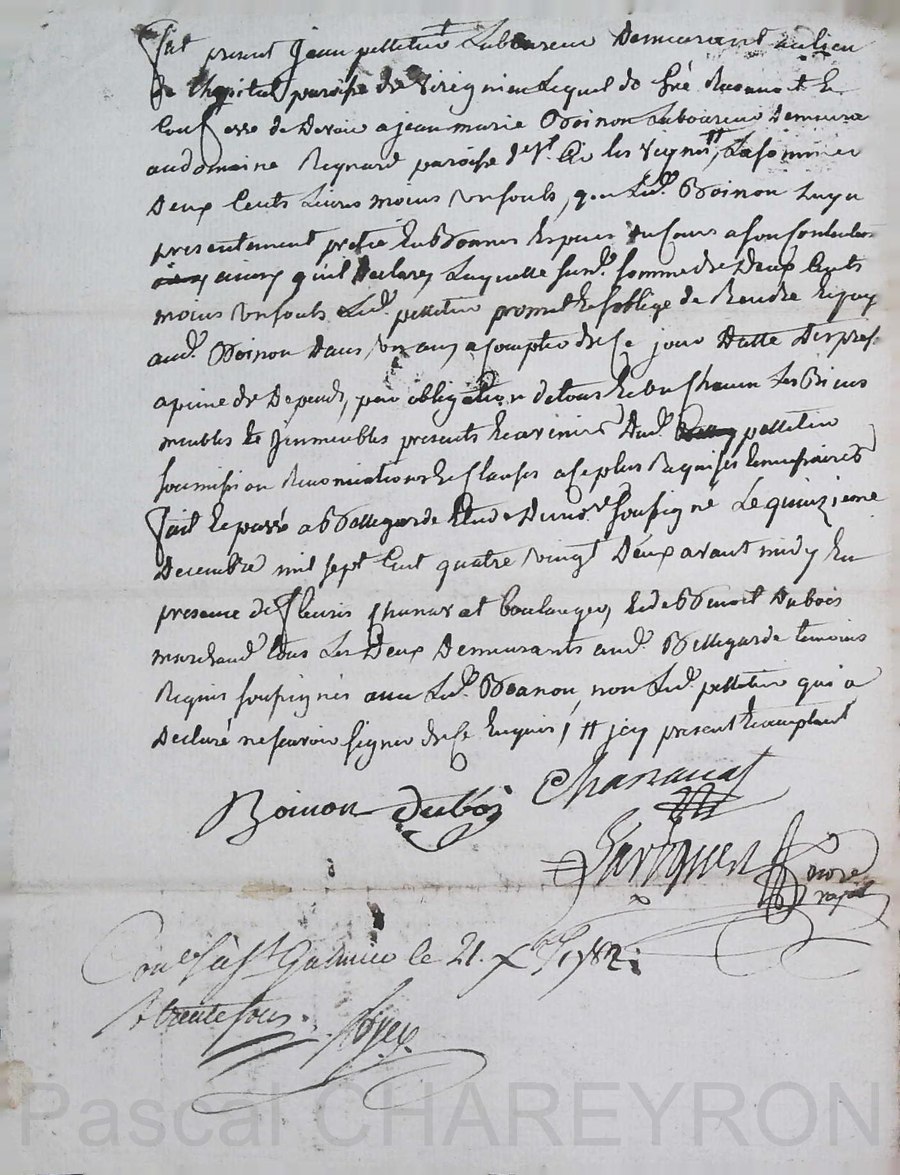 Fut present Jean pelletier Laboureur Demeurant au lieu
de lhopital paroisse de Virignieu Lequel de gré Reconnoit Et
Confesse de Devoir a jean marie Boinon Laboureur Demeurant
au domaine Reynard paroisse de St Cir les Vignes ╫, La somme de
Deux Cents Livres moins un souls, que Led. Boinon Luy a
presentement preté En Bonnes Especes du Cours a son Contentement
ainsy qu'il Declare, Laquelle susd. somme de Deux Cents
moins un souls Led. pelletier promet Et s'oblige de Rendre Et payer
aud. Boinon Dans un an, a Compter de Ce jour Datte Des pres.
a peine de Depends, par obligation de tous Et un Chacun Les Biens
meubles Et Jmmeubles presents Et avenirs Dud. pelletier
soumission Renonciations Et Clauses a Ce plus Requises Et necessaires
fait Et passé a Bellegarde Etude Du nore soussigné Le quinzieme
Decembre mil sept Cent quatre vingt Deux avant midy En
presence de fleuris Chanavat boulanger, Et de Benoit Dubois
marchand tous Les Deux Demeurants aud. Bellegarde temoins
Requis soussignés avec Led. Boinon, non Led. pelletier qui a
Declaré ne scavoir signer de Ce Enquis / ╫ jcy present Et acceptant
Boinon Dubois Chanavat
nore
royal
Con.lé à St Galmier le 21. Xbre 1782.
R trente sous.
Pascal CHAREYRON